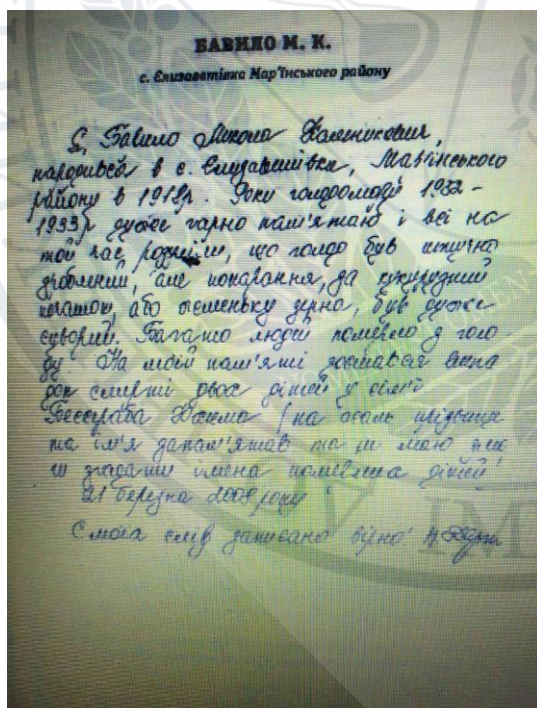 БАВИЛО М. К.
с. Єлизаветівка Мар'їнського району
Я, Бавило Микола
народився в с. Єлизаветівка, Мар'їнського
району в 1918р. Роки голодомору 1932-
1933р дуже гарно пам'ятаю і всі на
той час розуміли, що голод був штучно
зроблений, але покарання, за кукурудзяний
початок, або жменьку зерна, був дуже
суворий. Багато людей померло з голо-
ду. На моїй пам'яті зостався
смерті двох дітей у сім'ї
Бессараба
та ім'я запам'ятав та не можу
згадати імена дітей
21 березня 2008 року
З моїх слів записано вірно
ІМ